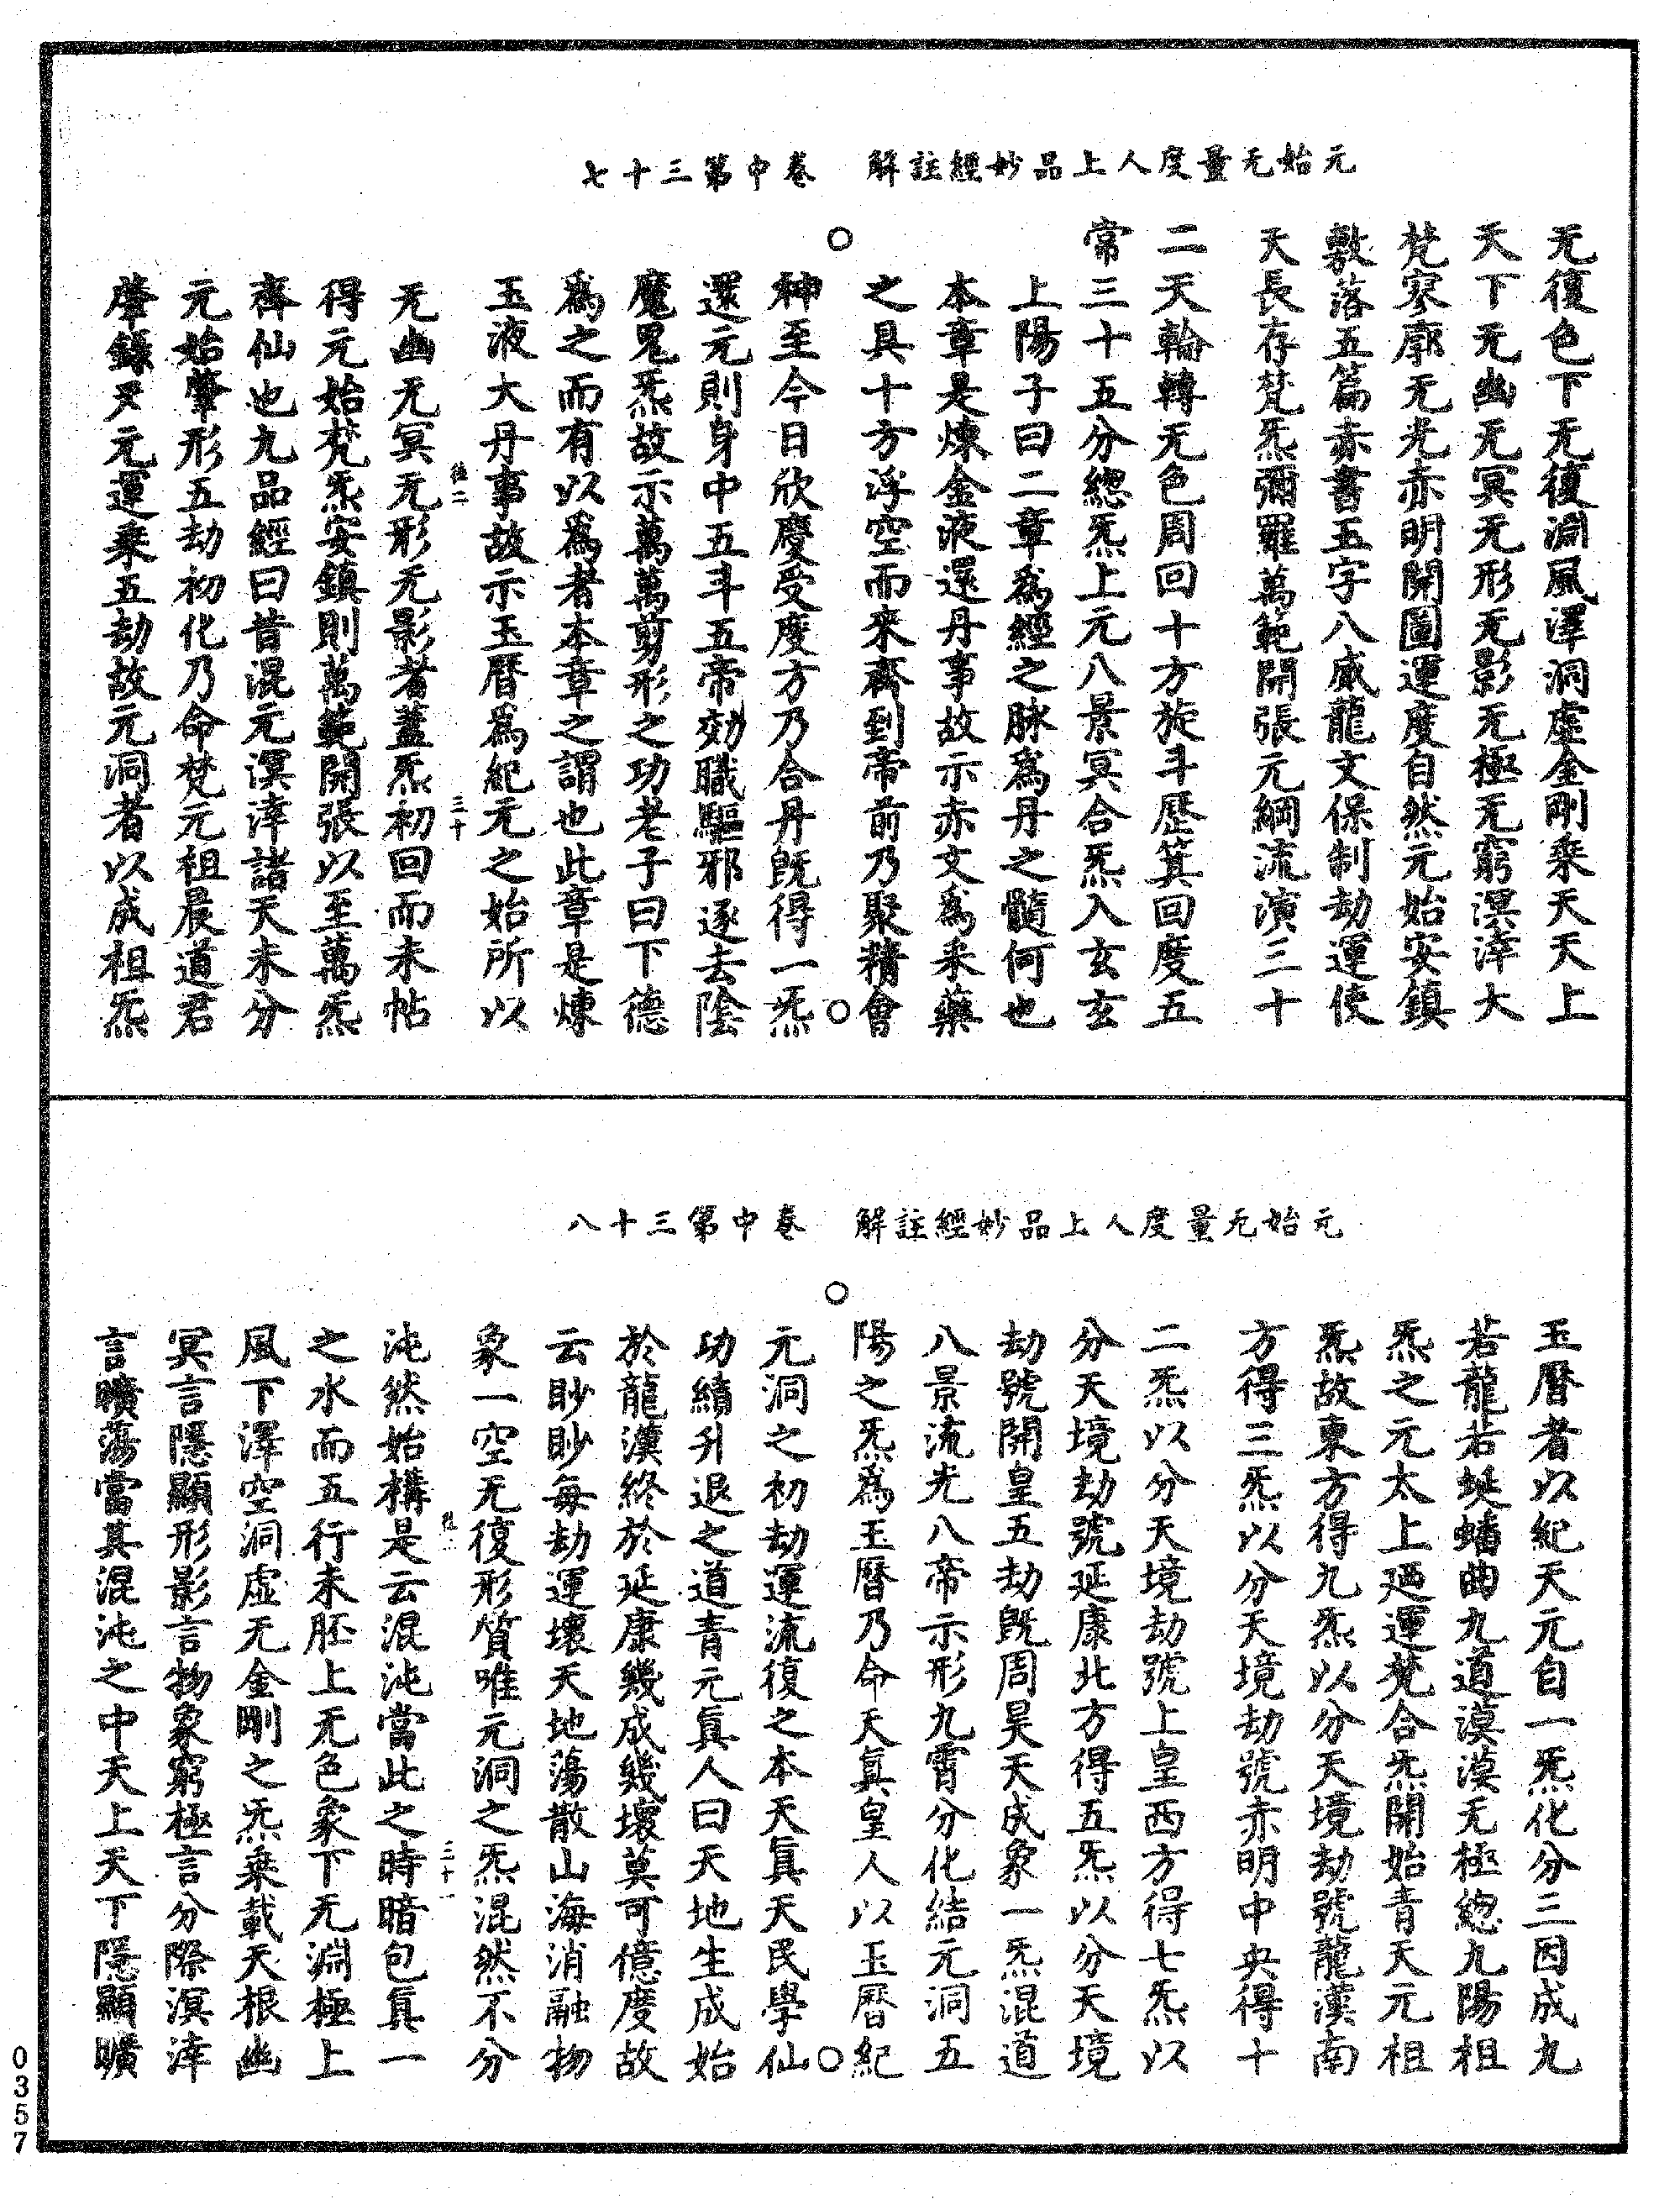 元始无量度人上品妙經註解　卷中第三十七
无復色下无復洞風澤洞虛金剛乘天天上
天下无幽无冥无形无影无極无窮溟涬大
梵寥廓无光赤明開圖運度自然元始安鎮
敷落五篇赤書玉字八威龍文保制劫運使
天長存梵炁彌羅萬範開張元綱流演三十
二天輪轉无色周回十方旋斗歷箕回度五
常三十五分緫炁上元八景冥合炁入玄玄
上陽子曰二章爲經之脉爲丹之髓何也
本章是煉金液還丹事故示赤文爲釆藥
之具十方浮空而來齊到帝前乃聚精會
神至今日欣慶受度方乃合丹旣得一炁
還元則身中五斗五帝効職驅邪逐去陰
魔鬼炁故示萬萬剪形之功老子曰下德
爲之而有以爲者本章之謂也此章是煉
玉液大丹事故示玉曆爲紀元之始所以
无幽无冥无形无影者蓋炁初回而未帖
得元始梵炁安鎮則萬範開張以至萬炁
齊仙也九品經曰昔混元溟涬諸天未分
元始肇形五劫初化乃命梵元祖晨道君
肇錄天元運乘五劫故元洞者以成祖炁
三十
元始无量度人上品妙經註解　卷中第三十八
玉曆者以紀天元自一炁化分三因成九
若龍若蜒蟠曲九道漠漠无極緫九陽祖
炁之元太上廼運梵合炁開始青天元祖
炁故東方得九炁以分天境劫號龍漢南
方得三炁以分天境劫號赤明中央得十
二炁以分天境劫號上皇西方得七炁以
分天境劫號延康北方得五炁以分天境
劫號開皇五劫旣周昊天成象一炁混道
八景流光八帝示形九霄分化結元洞五
陽之炁爲玉曆乃命天眞皇人以玉曆紀
元洞之初劫運流復之本天眞天民學仙
功績升退之道青元眞人曰天地生成始
於龍漢終於延康幾成幾壞莫可億度故
云眇眇每劫運壞天地蕩散山海消融物
象一空无復形質唯元洞之炁混然不分
沌然始構是云混沌當此之時暗包眞一
之水而五行未胚上无色象下无淵極上
風下澤空洞虛无金剛之炁乘載天根幽
冥言隱顯形影言物象窮極言分際溟涬
言曠蕩當其混沌之中天上天下隱顯曠
三十一
0357